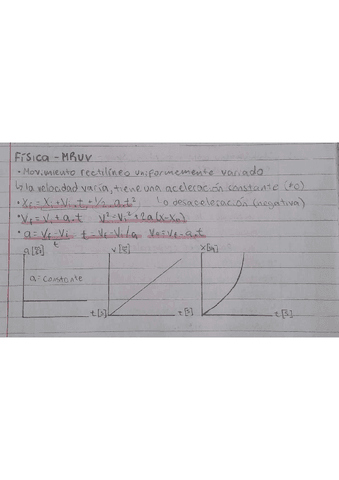 Física - MRUV
• Movimiento rectilíneo uniformemente variado
↳ la velocidad varía, tiene una aceleración constante (≠0)
• Xf = Xi + Vi . t + 1/2 . a . t² ↳ o desaceleración (negativa)
• Vf = Vi + a . t V² = Vi² + 2a(x-x₀)
• a = Vf - Vi / t t = Vf - Vi / a V₀ = Vf - a . t
a = constante
t [s] t [s] t [s]